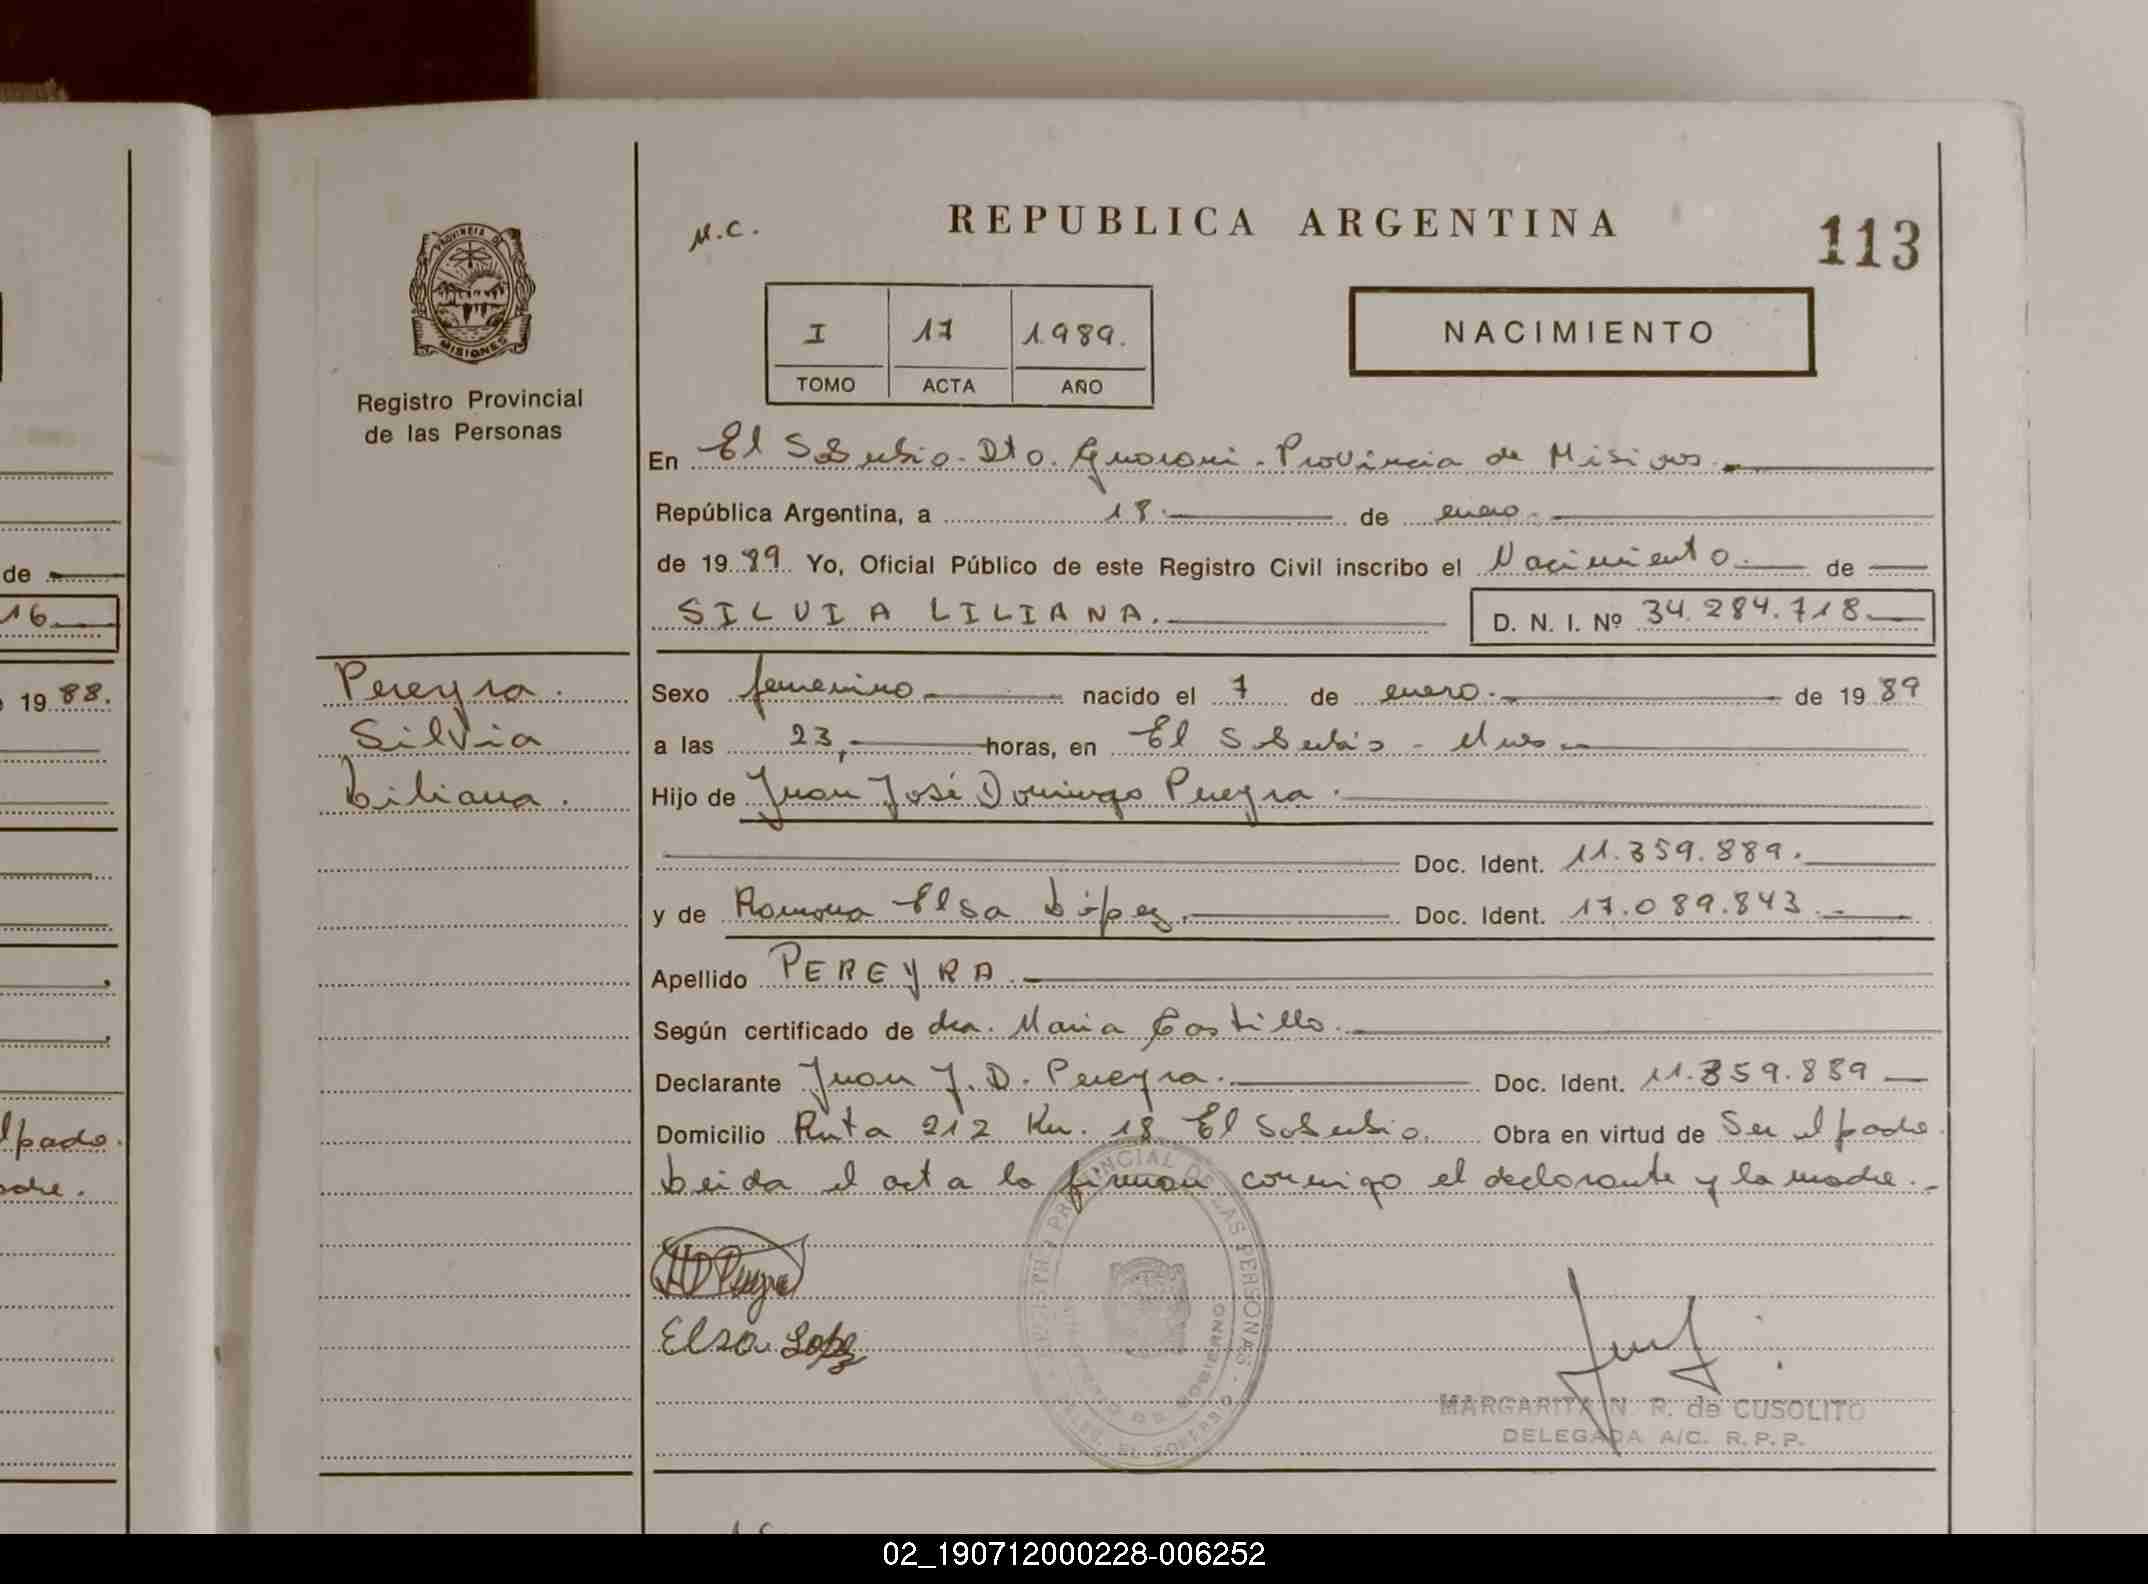 de
16
19 88.
el padre.
madre.
PROVINCIA DE
MISIONES
Registro Provincial
de las Personas
Pereyra.
Silvia
Liliana.
M.C.
REPUBLICA ARGENTINA
113
I 17 1.989.
TOMO ACTA AÑO
NACIMIENTO
En El Soberbio - Dto. Guarani - Provincia de Misiones.
República Argentina, a 18. de enero.
de 19 89 Yo, Oficial Público de este Registro Civil inscribo el Nacimiento. de
SILVIA LILIANA. D. N. I. Nº 34.284.718.
Sexo femenino nacido el 7 de enero. de 19 89
a las 23, horas, en El Soberbio - Mnes.
Hijo de Juan José Domingo Pereyra.
Doc. Ident. 11.359.889.
y de Ramona Elsa López. Doc. Ident. 17.089.843.
Apellido PEREYRA.
Según certificado de dra. Maria Castillo.
Declarante Juan J. D. Pereyra. Doc. Ident. 11.359.889
Domicilio Ruta 212 Km. 18 El Soberbio. Obra en virtud de Ser el padre.
Leida el acta la firman conmigo el declarante y la madre.
REGISTRO PROVINCIAL DE LAS PERSONAS
GOBIERNO
Pereyra
Elsa Lopez
MARGARITA N. R. de CUSOLITO
DELEGADA A/C. R. P. P.
02_190712000228-006252